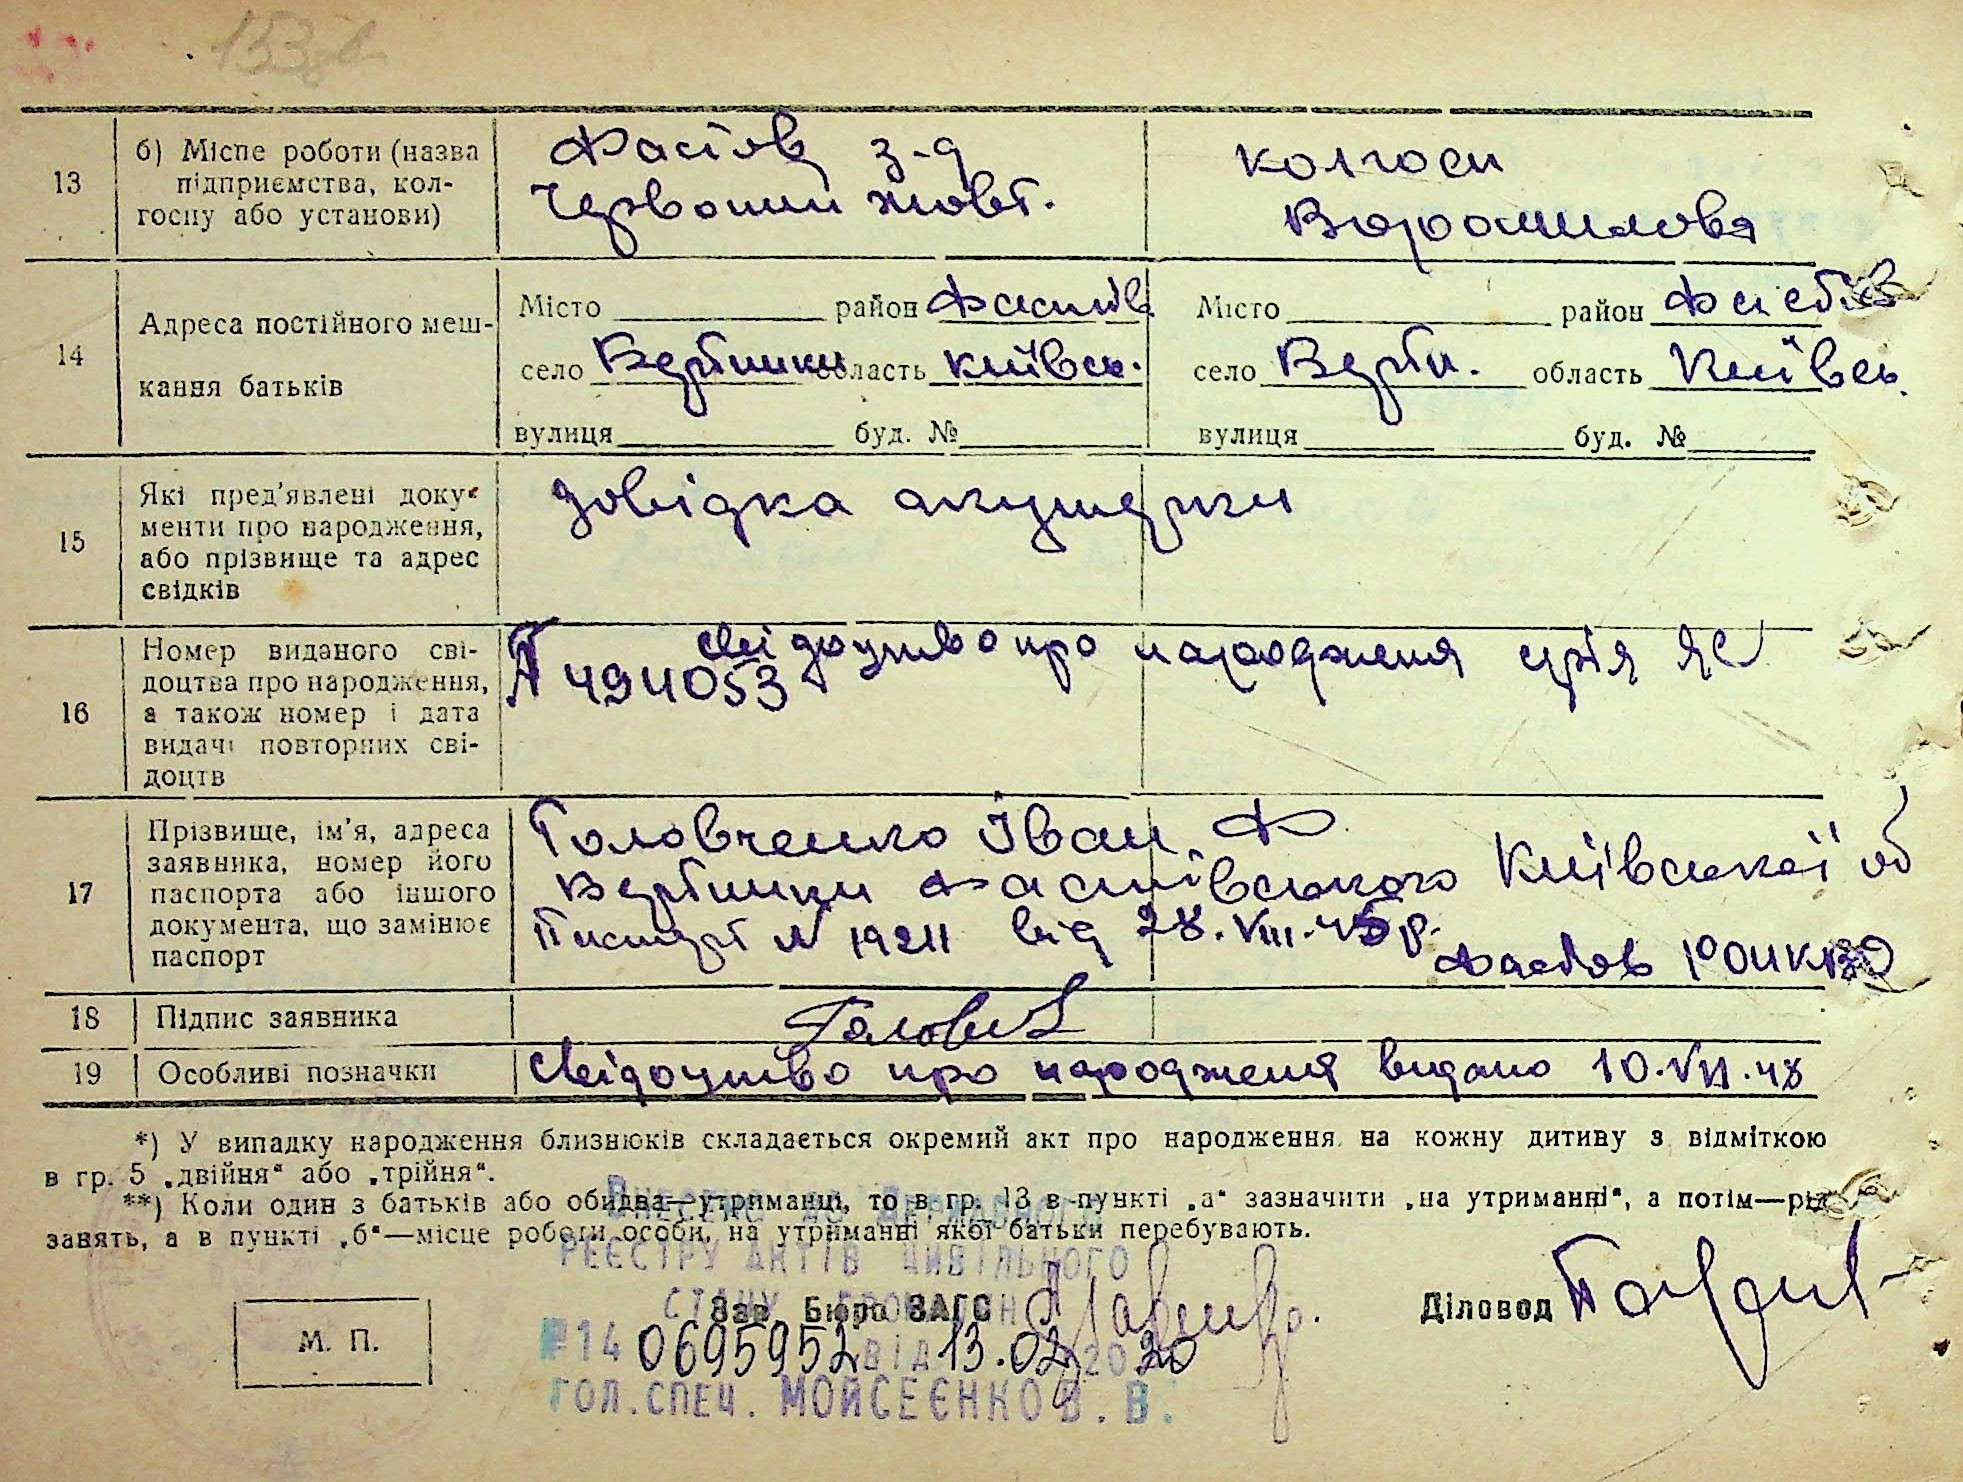 133 зв
13
б) Місце роботи (назва
підприємства, кол-
госпу або установи)
Фастов з-д
Червоний жовт.
колгосп
Ворошилова
14
Адреса постійного меш-
кання батьків
Місто район Фастів
село Вербники область Київськ.
вулиця буд. №
Місто район Фастів
село Вербн. область Київськ.
вулиця буд. №
15
Які пред'явлені доку-
менти про народження,
або прізвище та адрес
свідків
довідка акушерки
16
Номер виданого сві-
доцтва про народження,
а також номер і дата
видачі повторних сві-
доцтв
свідоцтво про народження серія ЯС
494053
17
Прізвище, ім'я, адреса
заявника, номер його
паспорта або іншого
документа, що замінює
паспорт
Головченко Іван Ф
Вербники Фастівського Київської об
Паспорт N 19211 від 28.VIII.45р.
Фастов
18
Підпис заявника
19
Особливі позначки
Свідоцтво про народження видано 10.VII.48
*) У випадку народження близнюків складається окремий акт про народження на кожну дитину з відміткою
в гр. 5 „двійня“ або „трійня“.
**) Коли один з батьків або обидва—утриманці, то в гр. 13 в пункті „а“ зазначити „на утриманні“, а потім—рід
занять, а в пункті „б“—місце роботи особи, на утриманні якої батьки перебувають.
ВНЕСЕНО ДО ДЕРЖАВНОГО
РЕЄСТРУ АКТІВ ЦИВІЛЬНОГО
СТАНУ ГРОМАДЯН
Зав. Бюро ЗАГС
Діловод
М. П.
№14 0695952 від 13.02 2020
ГОЛ.СПЕЦ. МОЙСЕЄНКО В. В.